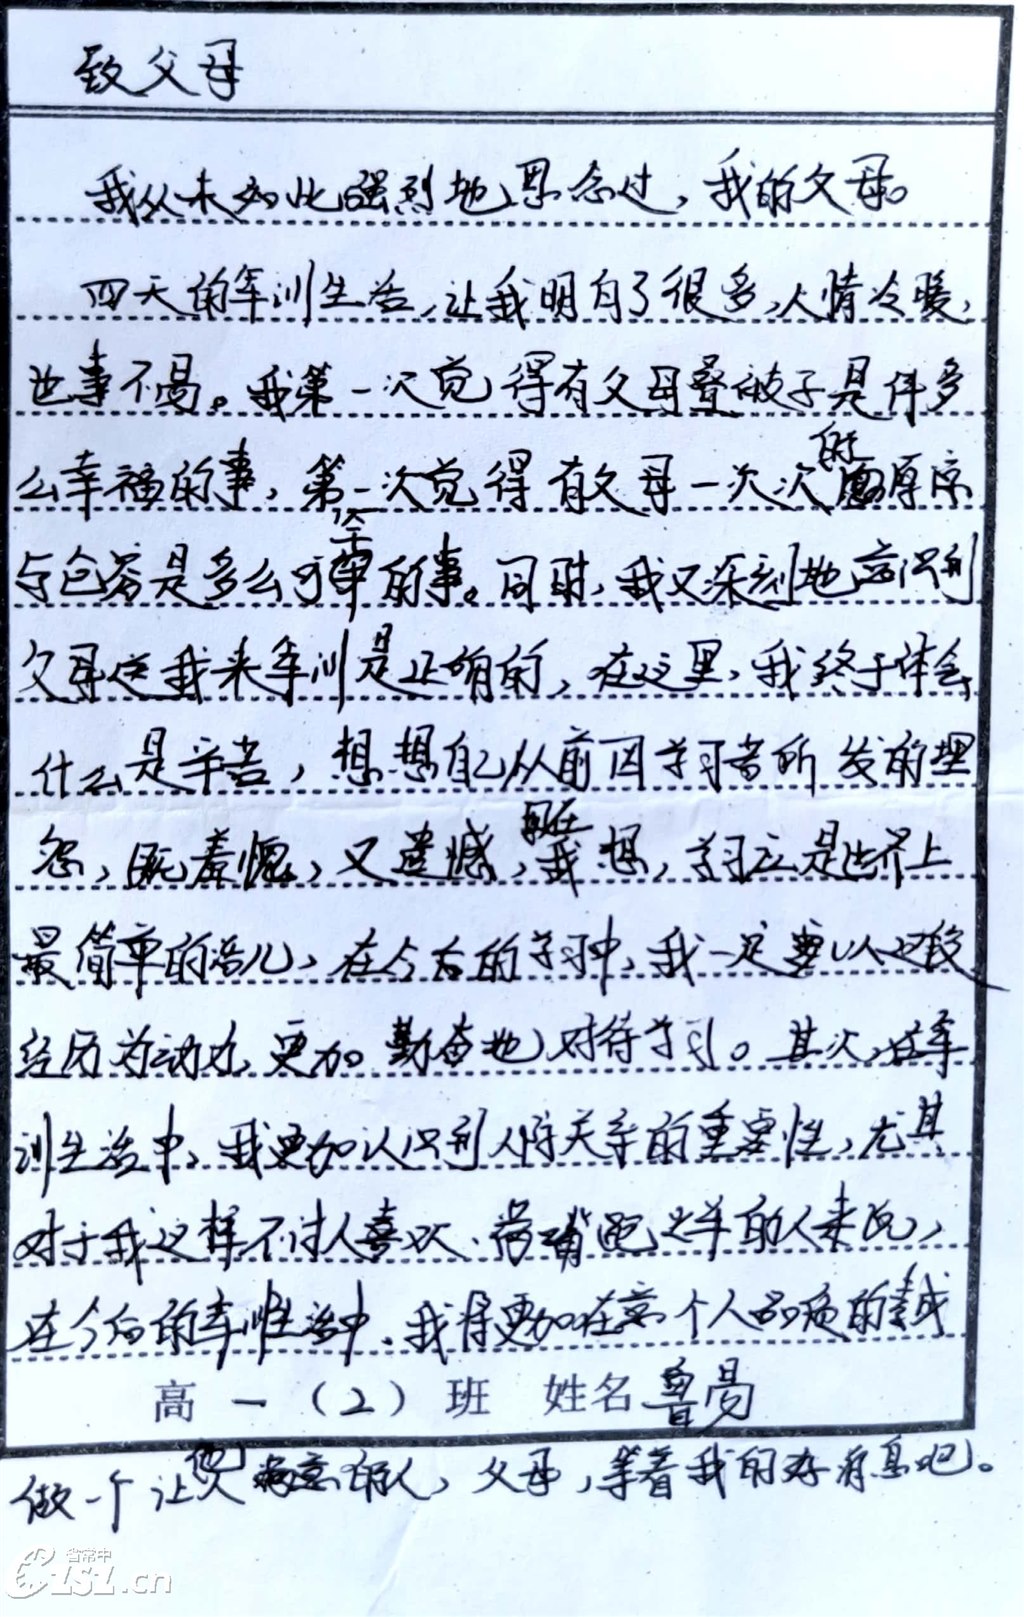 致父母
我从未如此强烈地思念过，我的父母。
四天的军训生活，让我明白了很多，人情冷暖，
世事不易。我第一次觉得有父母叠被子是件多
么幸福的事，第一次觉得有父母一次次的原谅
与包容是多么可幸的事。同时，我又深刻地意识到
父母送我来军训是正确的，在这里，我终于体会
什么是辛苦，想想自己从前因学习苦所发的埋
怨，既羞愧，又遗憾，现在我想，学习应是世界上
最简单的活儿，在今后的学习中，我一定要以这段
经历为动力，更加勤奋地对待学习。其次，在军
训生活中，我更加认识到人际关系的重要性，尤其
对于我这样不讨人喜欢、常嘴跑火车的人来说，
在今后的军训生活中，我得更加在意个人品质的养成
高一（2）班 姓名 鲁易
做一个让他人满意的人，父母，等着我的好消息吧。
省常中
CZSZ.cn